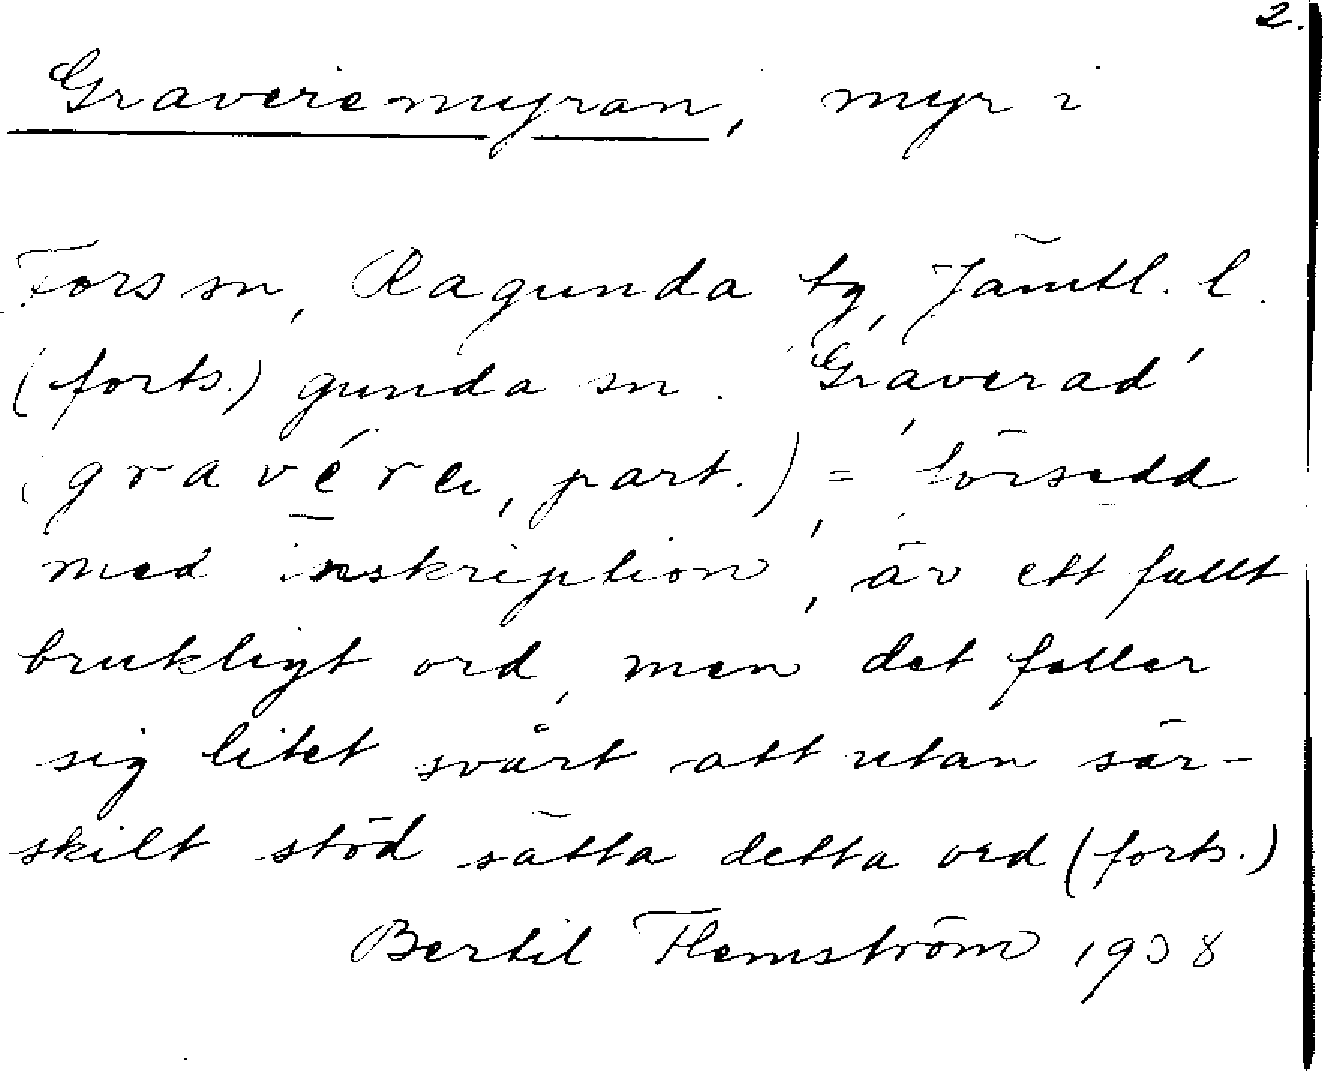 2.
Graveriemyran, myr i
Fors sn, Ragunda tg, Jämtl. l.
(forts.) gunda sn. 'Graverad'
(gravéra, part.) = 'försedd
med inskription', är ett fullt
brukligt ord, men det faller
sig litet svårt att utan sär-
skilt stöd sätta detta ord (forts.)
Bertil Flemström 1938